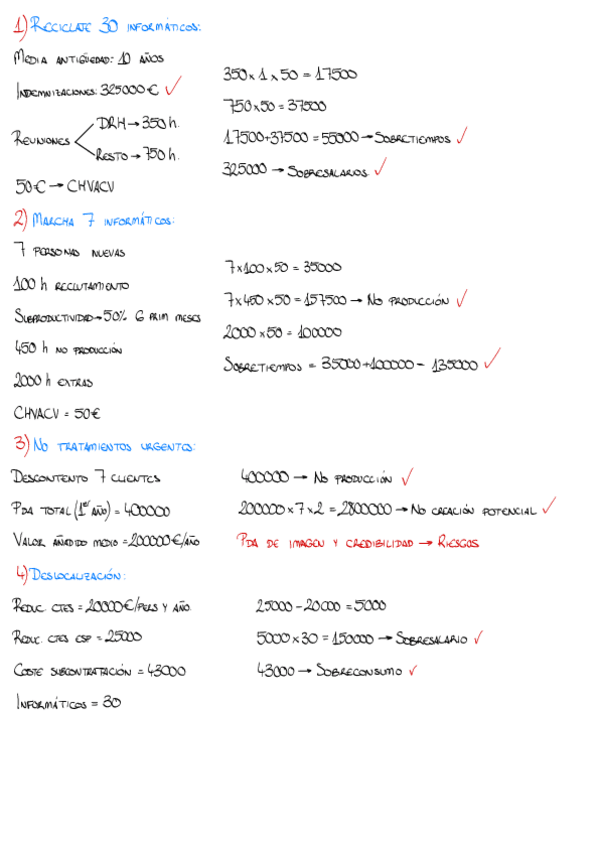 1) RECICLATE 30 INFORMÁTICOS:
MEDIA ANTIGÜEDAD: 10 AÑOS
INDEMNIZACIONES: 325000 € ✓
REUNIONES
DRH → 350 h.
RESTO → 750 h.
50 € → CHVACV
350 x 1 x 50 = 17500
750 x 50 = 37500
17500+37500 = 55000 → SOBRETIEMPOS ✓
325000 → SOBRESALARIOS ✓
2) MARCHA 7 INFORMÁTICOS:
7 PERSONAS NUEVAS
100 h RECLUTAMIENTO
SUBPRODUCTIVIDAD → 50% 6 PRIM MESES
450 h NO PRODUCCIÓN
2000 h EXTRAS
CHVACV = 50€
7 x 100 x 50 = 35000
7 x 450 x 50 = 157500 → NO PRODUCCIÓN ✓
2000 x 50 = 100000
SOBRETIEMPOS = 35000+100000 = 135000 ✓
3) NO TRATAMIENTOS URGENTES:
DESCONTENTO 7 CLIENTES
PDA TOTAL (1er AÑO) = 400000
VALOR AÑADIDO MEDIO = 200000€/AÑO
400000 → NO PRODUCCIÓN ✓
200000 x 7 x 2 = 2800000 → NO CREACIÓN POTENCIAL ✓
PDA DE IMAGEN Y CREDIBILIDAD → RIESGOS
4) DESLOCALIZACIÓN:
REDUC CTES = 20000 €/PERS Y AÑO.
REDUC. CTES ESP = 25000
COSTE SUBCONTRATACIÓN = 43000
INFORMÁTICOS = 30
25000 - 20000 = 5000
5000 x 30 = 150000 → SOBRESALARIO ✓
43000 → SOBRECONSUMO ✓